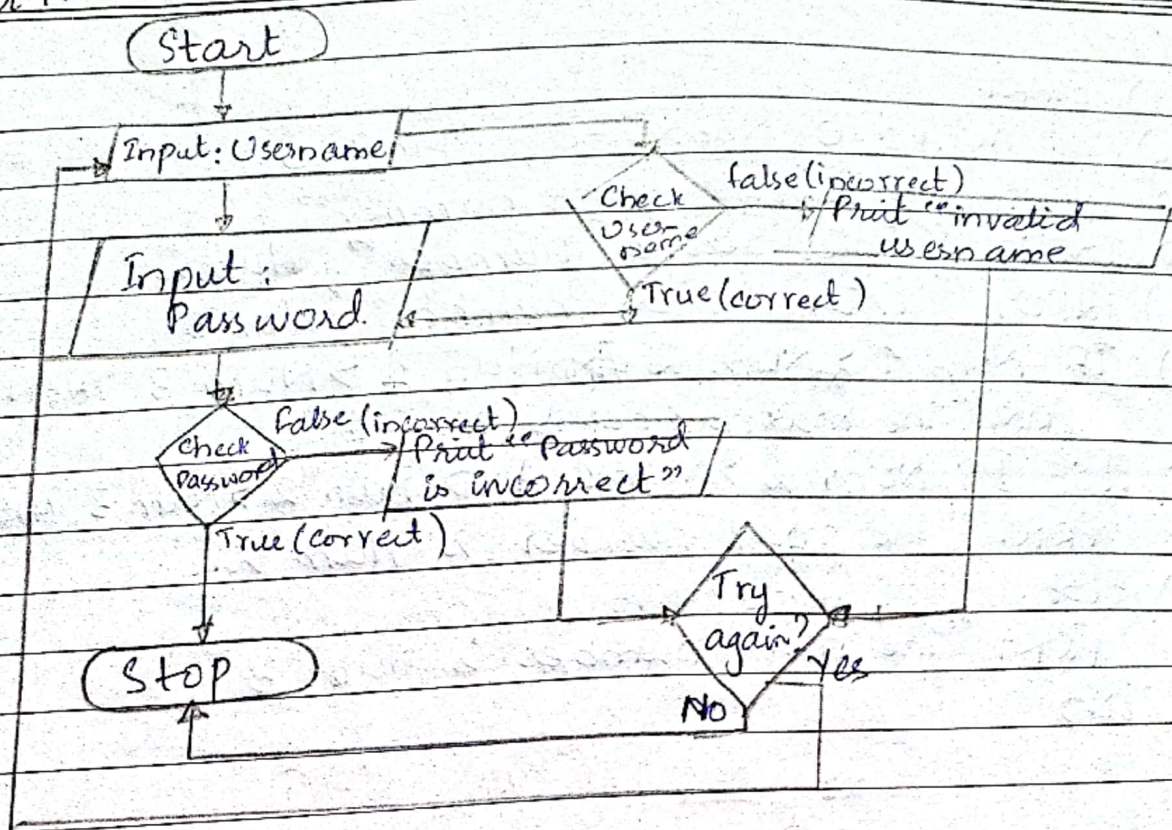 Start
Input: Username
Check
User-
name
false (incorrect)
Print "invalid
username
True (correct)
Input :
Password.
Check
Password
False (incorrect)
Print "Password
is incorrect"
True (correct)
Try
again?
Yes
No
Stop